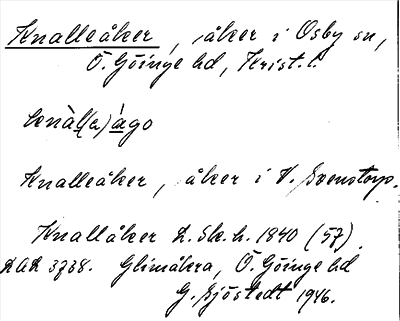 Knalleåker, åker i Osby sn,
Ö. Göinge hd, Krist. l.
knàl(a)ágo
Knalleåker, åker i V. Svenstorp.
Knallåker L. Sk. h. 1840 (57)
LAL 3738. Glimåkra, Ö. Göinge hd
G. Sjöstedt 1946.